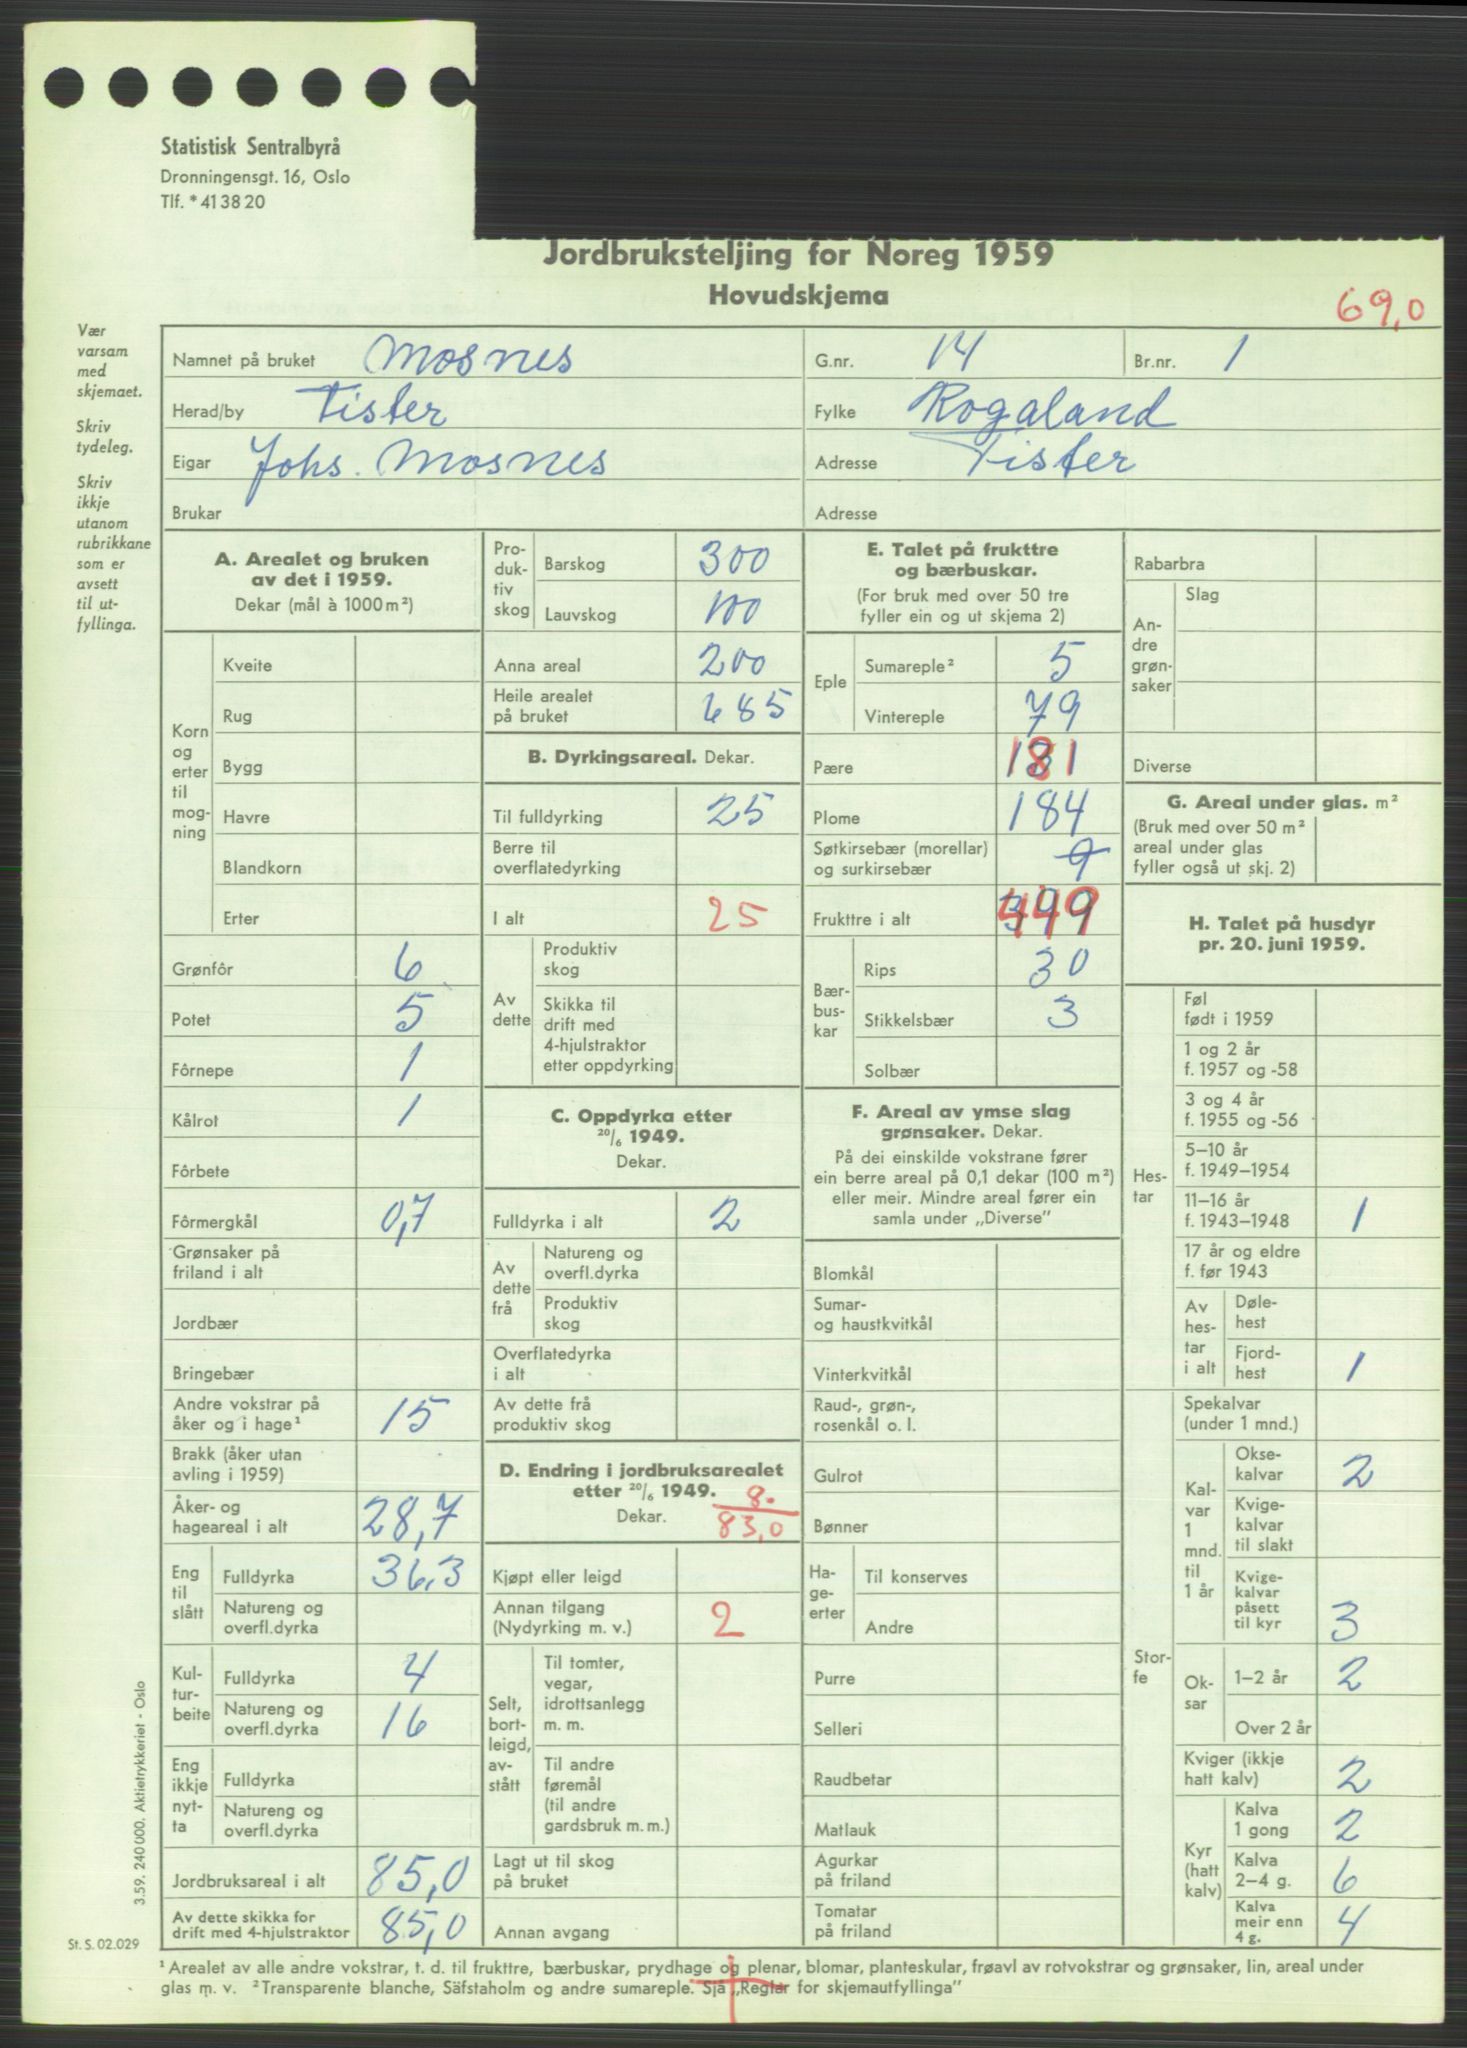 Statistisk Sentralbyrå
Dronningensgt. 16, Oslo
Tlf. * 41 38 20
Jordbruksteljing for Noreg 1959
Hovudskjema
69,0
Vær
varsam
med
skjemaet.
Skriv
tydeleg.
Skriv
ikkje
utanom
rubrikkane
som er
avsett
til ut-
fyllinga.
Namnet på bruket Mosnes G.nr. 14 Br.nr. 1
Herad/by Fister Fylke Rogaland
Eigar Johs. Mosnes Adresse Fister
Brukar Adresse
A. Arealet og bruken
av det i 1959.
Dekar (mål à 1000 m²)
Korn
og
erter
til
mog-
ning
Kveite
Rug
Bygg
Havre
Blandkorn
Erter
Grønfôr 6
Potet 5
Fôrnepe 1
Kålrot 1
Fôrbete
Fôrmergkål 0,7
Grønsaker på
friland i alt
Jordbær
Bringebær
Andre vokstrar på
åker og i hage¹ 15
Brakk (åker utan
avling i 1959)
Åker- og
hageareal i alt 28,7
Eng
til
slått
Fulldyrka 36,3
Natureng og
overfl.dyrka
Kul-
tur-
beite
Fulldyrka 4
Natureng og
overfl.dyrka 16
Eng
ikkje
nyt-
ta
Fulldyrka
Natureng og
overfl.dyrka
Jordbruksareal i alt 85,0
Av dette skikka for
drift med 4-hjulstraktor 85,0
Pro-
duk-
tiv
skog
Barskog 300
Lauvskog 100
Anna areal 200
Heile arealet
på bruket 685
B. Dyrkingsareal. Dekar.
Til fulldyrking 25
Berre til
overflatedyrking
I alt 25
Av
dette
Produktiv
skog
Skikka til
drift med
4-hjulstraktor
etter oppdyrking
C. Oppdyrka etter
20/6 1949.
Dekar.
Fulldyrka i alt 2
Av
dette
frå
Natureng og
overfl.dyrka
Produktiv
skog
Overflatedyrka
i alt
Av dette frå
produktiv skog
D. Endring i jordbruksarealet
etter 20/6 1949.
Dekar.
8.
83,0
Kjøpt eller leigd
Annan tilgang
(Nydyrking m. v.) 2
Selt,
bort-
leigd,
av-
stått
Til tomter,
vegar,
idrottsanlegg
m. m.
Til andre
føremål
(til andre
gardsbruk m. m.)
Lagt ut til skog
på bruket
Annan avgang
E. Talet på frukttre
og bærbuskar.
(For bruk med over 50 tre
fyller ein og ut skjema 2)
Eple
Sumareple² 5
Vintereple 79
Pære 181
Plome 184
Søtkirsebær (morellar)
og surkirsebær
Frukttre i alt 449
Bær-
bus-
kar
Rips 30
Stikkelsbær 3
Solbær
F. Areal av ymse slag
grønsaker. Dekar.
På dei einskilde vokstrane fører
ein berre areal på 0,1 dekar (100 m²)
eller meir. Mindre areal fører ein
samla under „Diverse”
Blomkål
Sumar-
og haustkvitkål
Vinterkvitkål
Raud-, grøn-,
rosenkål o. l.
Gulrot
Bønner
Ha-
ge-
erter
Til konserves
Andre
Purre
Selleri
Raudbetar
Matlauk
Agurkar
på friland
Tomatar
på friland
Rabarbra
An-
dre
grøn-
saker
Slag
Diverse
G. Areal under glas. m²
(Bruk med over 50 m²
areal under glas
fyller også ut skj. 2)
H. Talet på husdyr
pr. 20. juni 1959.
Hes-
tar
Føl
født i 1959
1 og 2 år
f. 1957 og -58
3 og 4 år
f. 1955 og -56
5–10 år
f. 1949–1954
11–16 år
f. 1943–1948 1
17 år og eldre
f. før 1943
Av
hes-
tar
i alt
Døle-
hest
Fjord-
hest 1
Stor-
fe
Spekalvar
(under 1 mnd.)
Kal-
var
1
mnd.
til
1 år
Okse-
kalvar 2
Kvige-
kalvar
til slakt
Kvige-
kalvar
påsett
til kyr 3
Ok-
sar
1–2 år 2
Over 2 år
Kviger (ikkje
hatt kalv) 2
Kyr
(hatt
kalv)
Kalva
1 gong 2
Kalva
2–4 g. 6
Kalva
meir enn
4 g. 4
3.59. 240 000. Aktietrykkeriet - Oslo
St. S. 02.029
¹ Arealet av alle andre vokstrar, t. d. til frukttre, bærbuskar, prydhage og plenar, blomar, planteskular, frøavl av rotvokstrar og grønsaker, lin, areal under
glas m. v. ² Transparente blanche, Säfstaholm og andre sumareple. Sjå „Reglar for skjemautfyllinga”